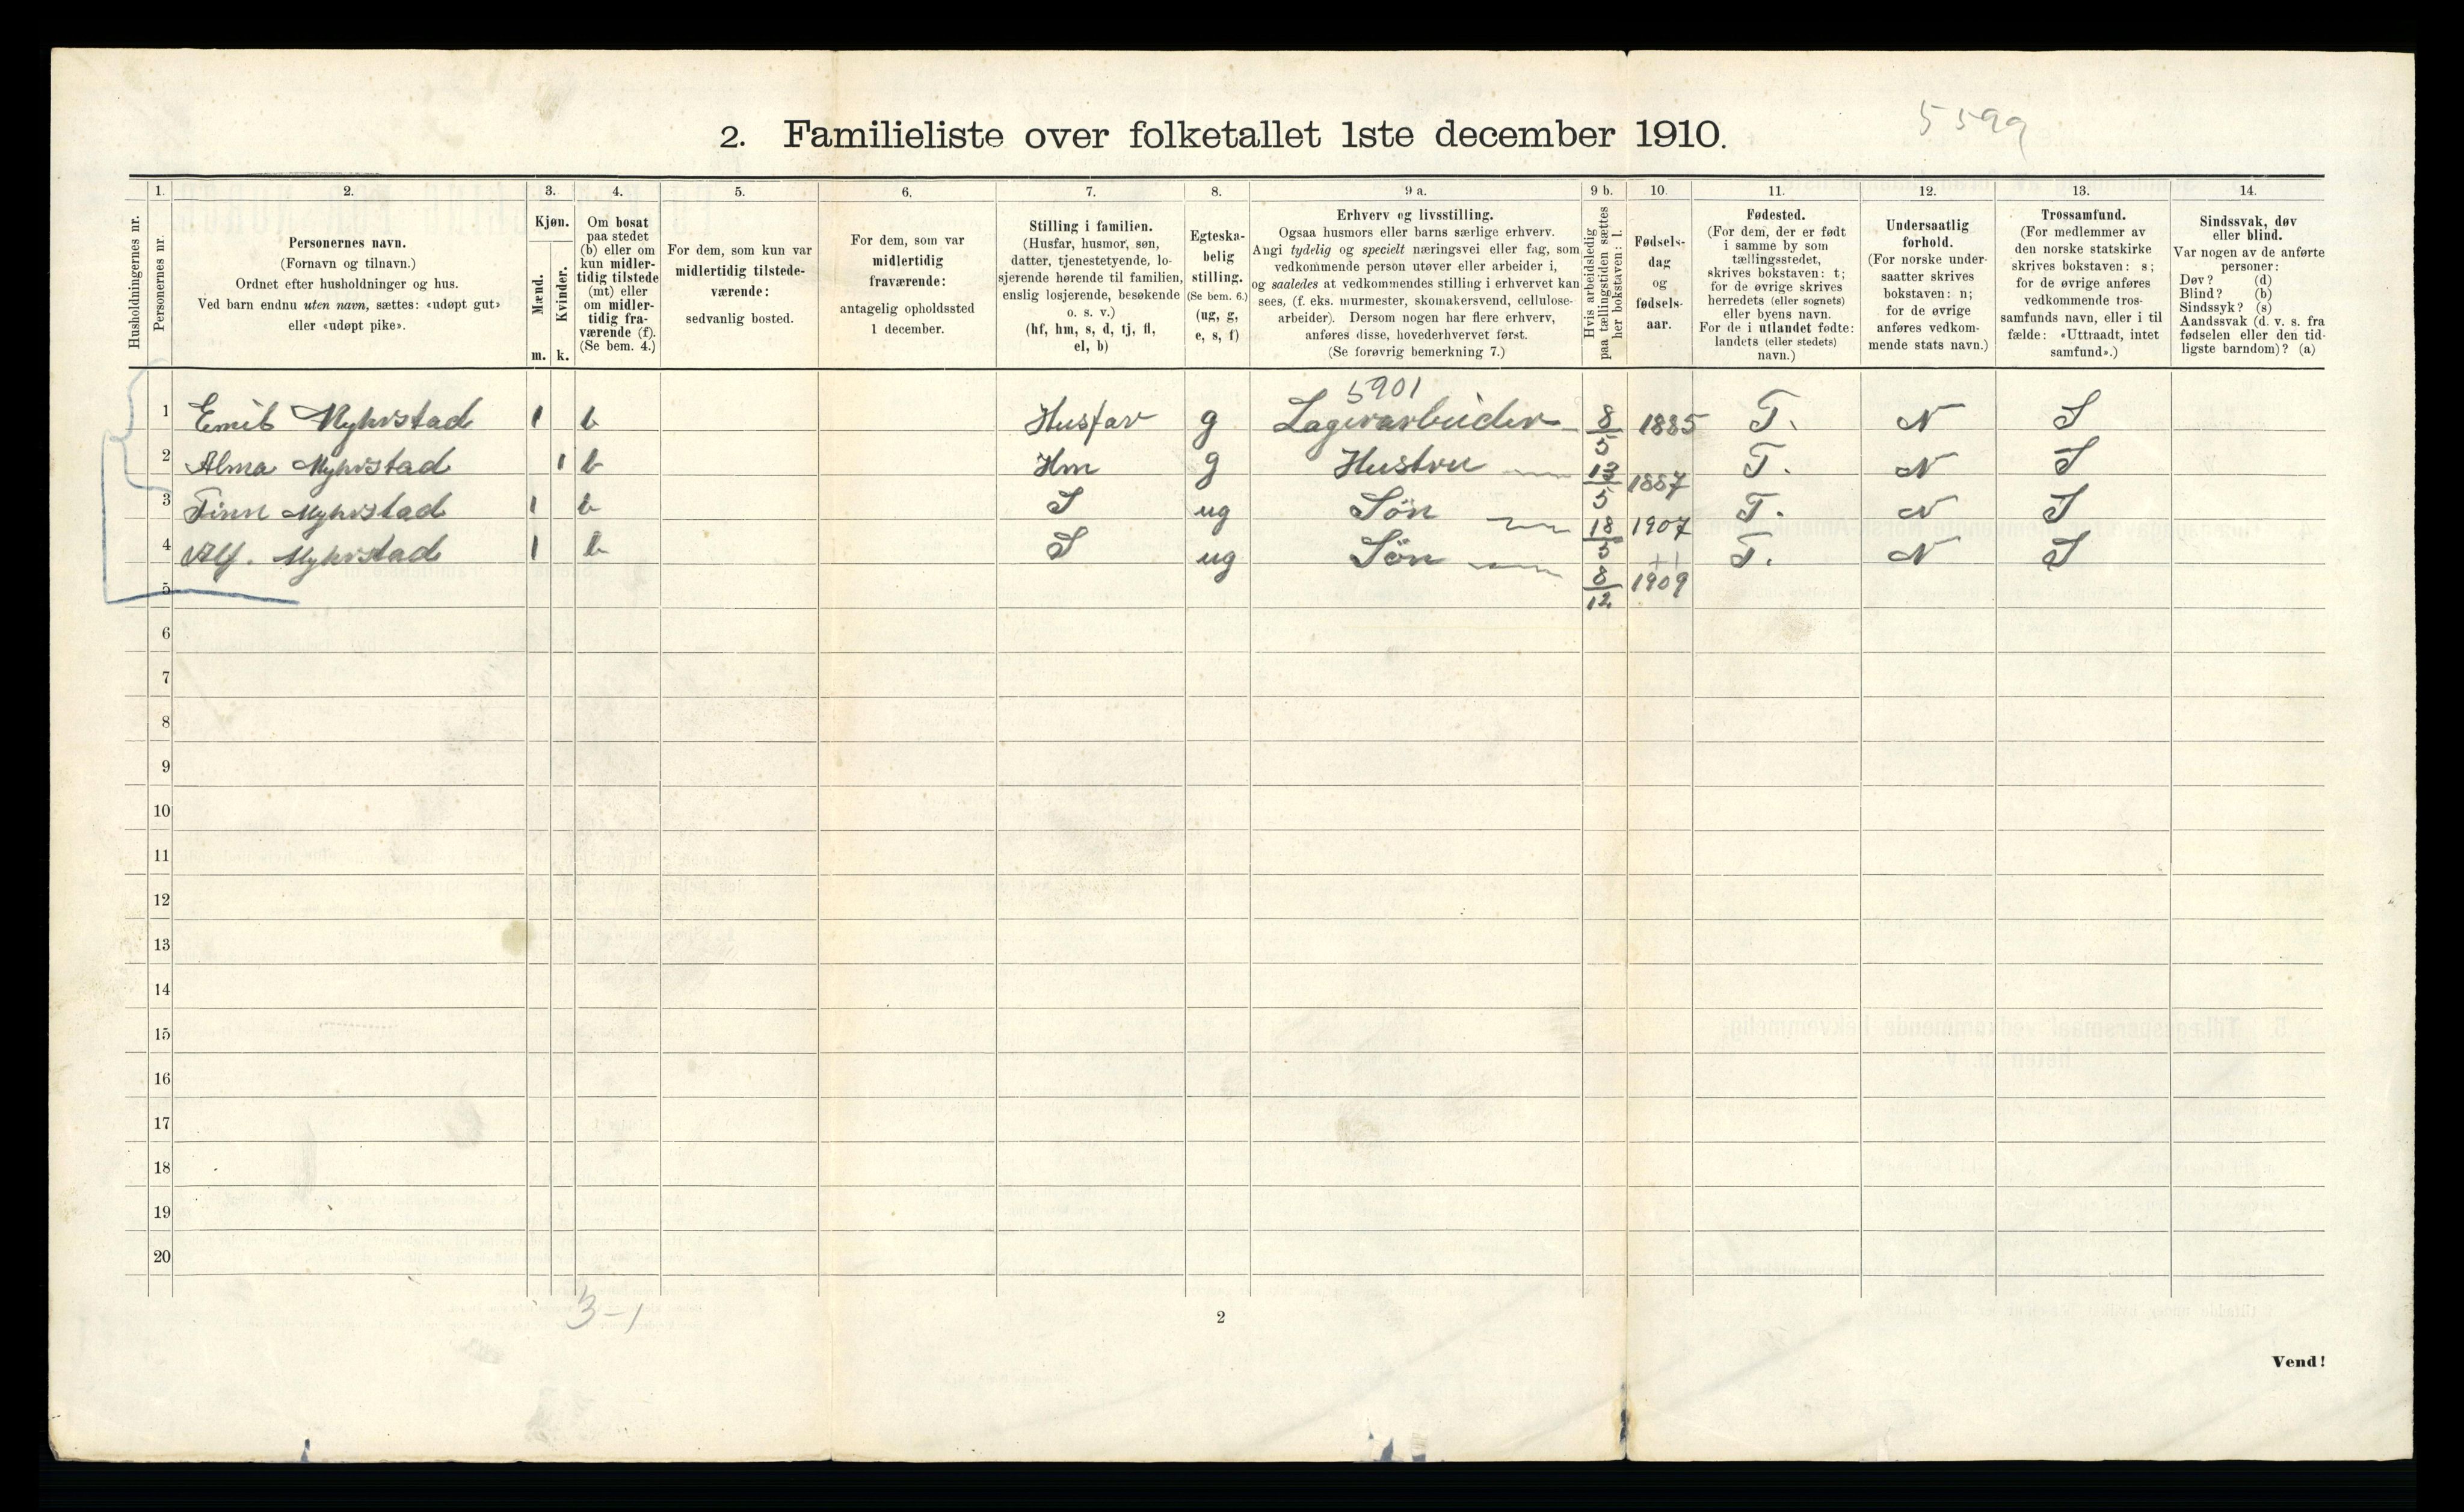 5599
2. Familieliste over folketallet 1ste december 1910.
1. 2. 3. 4. 5. 6. 7. 8. 9 a. 9 b. 10. 11. 12. 13. 14.
Husholdningernes nr.
Personernes nr.
Personernes navn.
(Fornavn og tilnavn.)
Ordnet efter husholdninger og hus.
Ved barn endnu uten navn, sættes: «udøpt gut»
eller «udøpt pike».
Kjøn.
Mænd.
Kvinder.
m. k.
Om bosat
paa stedet
(b) eller om
kun midler-
tidig tilstede
(mt) eller
om midler-
tidig fra-
værende (f).
(Se bem. 4.)
For dem, som kun var
midlertidig tilstede-
værende:
sedvanlig bosted.
For dem, som var
midlertidig
fraværende:
antagelig opholdssted
1 december.
Stilling i familien.
(Husfar, husmor, søn,
datter, tjenestetyende, lo-
sjerende hørende til familien,
enslig losjerende, besøkende
o. s. v.)
(hf, hm, s, d, tj, fl,
el, b)
Egteska-
belig
stilling.
(Se bem. 6.)
(ug, g,
e, s, f)
Erhverv og livsstilling.
Ogsaa husmors eller barns særlige erhverv.
Angi tydelig og specielt næringsvei eller fag, som
vedkommende person utøver eller arbeider i,
og saaledes at vedkommendes stilling i erhvervet kan
sees, (f. eks. murmester, skomakersvend, cellulose-
arbeider). Dersom nogen har flere erhverv,
anføres disse, hovederhvervet først.
(Se forøvrig bemerkning 7.)
Hvis arbeidsledig
paa tællingstiden sættes
her bokstaven: l.
Fødsels-
dag
og
fødsels-
aar.
Fødested.
(For dem, der er født
i samme by som
tællingsstedet,
skrives bokstaven: t;
for de øvrige skrives
herredets (eller sognets)
eller byens navn.
For de i utlandet fødte:
landets (eller stedets)
navn.)
Undersaatlig
forhold.
(For norske under-
saatter skrives
bokstaven: n;
for de øvrige
anføres vedkom-
mende stats navn.)
Trossamfund.
(For medlemmer av
den norske statskirke
skrives bokstaven: s;
for de øvrige anføres
vedkommende tros-
samfunds navn, eller i til
fælde: «Uttraadt, intet
samfund».)
Sindssvak, døv
eller blind.
Var nogen av de anførte
personer:
Døv? (d)
Blind? (b)
Sindssyk? (s)
Aandssvak (d. v. s. fra
fødselen eller den tid-
ligste barndom)? (a)
5901
1 Emil Myhrstad 1 b Husfar g Lagerarbeider 8/5 1885 T. N S
2 Alma Myhrstad 1 b Hm g Hustru 13/5 1887 T. N S
3 Finn Myhrstad 1 b S ug Søn 18/5 1907 T. N S
4 Alf. Myhrstad 1 b S ug Søn 8/12 1909 T. N S
5
6
7
8
9
10
11
12
13
14
15
16
17
18
19
20
3-1
2
Vend!